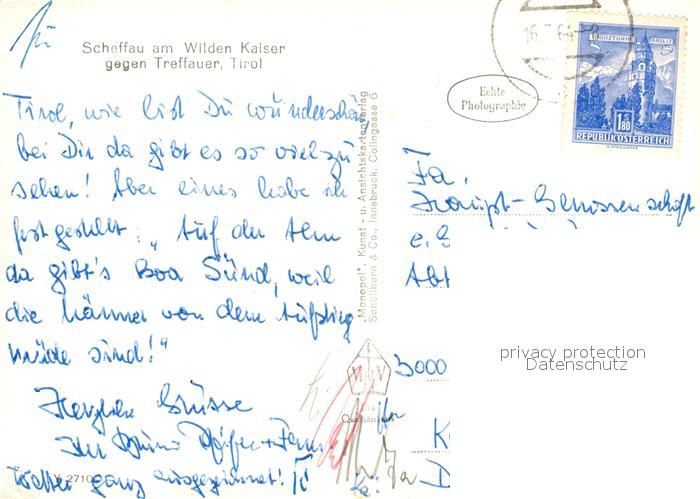 Scheffau am Wilden Kaiser
gegen Treffauer, Tirol
Tirol, wie bist Du wunderschön,
bei Dir da gibt es so viel zu
sehen! Aber eines habe ich
festgestellt: „Auf der Alm
da gibt's Boa Sünd, weil
die Männer von dem Aufstieg
müde sind!"
Herzliche Grüsse
Ihr Bruno
Wetter ganz ausgezeichnet!
27109
"Monopol", Kunst- u. Ansichtskartenverlag
Schöllhorn & Co., Innsbruck, Colingasse 6
Echte
Photographie
16. 64-8
MÜNZTURM HALL I.T.
S 1.80
REPUBLIK ÖSTERREICH
Fa.
Haupt-Genossenschaft
e.G
Abt
3000
privacy protection
Datenschutz